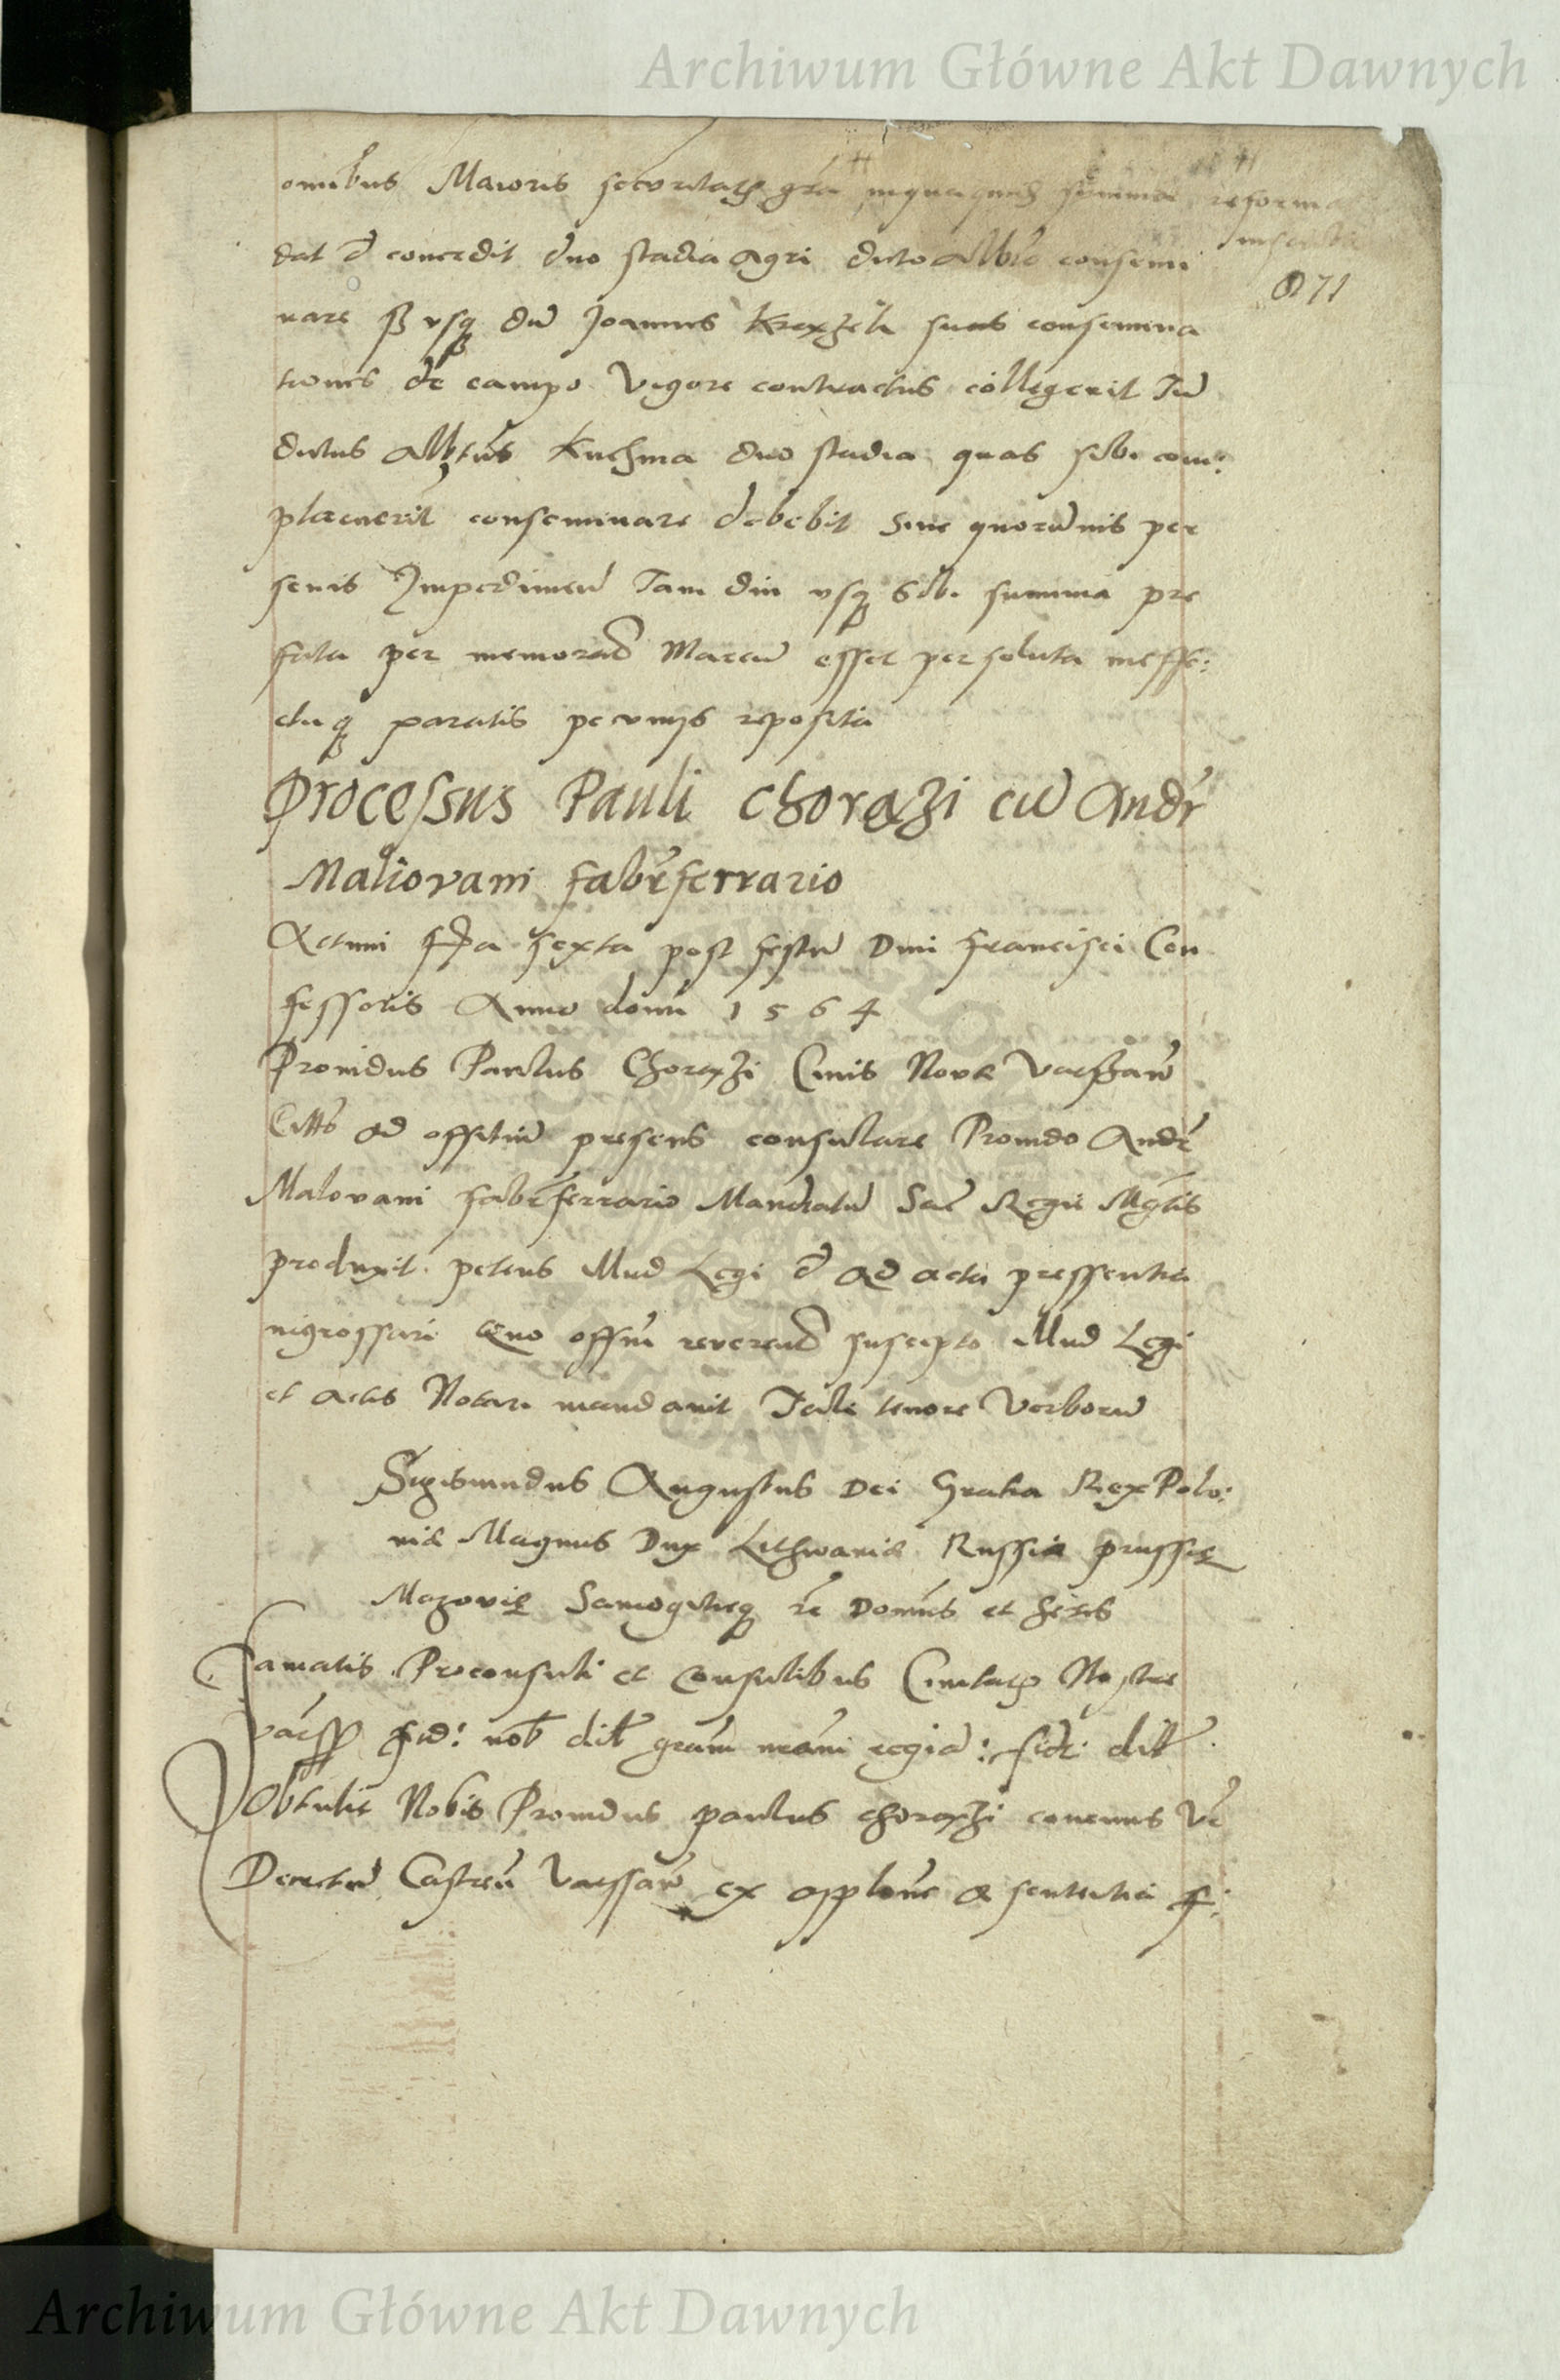 Archiwum Główne Akt Dawnych
omibus Maioris securitatis gra inquaqunq summa reforma
dat et concedit duo stadia agri dicto Albto consemi
nare sz usq du Joannis Krexzeli suas consemina
tiones de campo Vigore contractus collegerit Tu
dictus Albtus Kuchma duo stadia quas sibi com:
placuerit conseminare debebit sine quorumvis per
sonis Impedimen Tam diu usq sibi summa pre
fata per memorad Marcu esset persoluta ineffe:
ctuq paratis pecunijs reposita
71
Processus Pauli Chorążi cu Andr
Maliovani fabr ferrario
Actum fria sexta post festu Divi Francisci Con
fessoris Anno domi 1564
Providus Paulus Chorązi Civis Nove Varszavie
Citts ad offitiu presens consulare Provido Andr
Malovani fabr ferrario Mandatu Sac Regie Mtis
produxit petens illud Legi et ad acta pressentia
ingrossari Quo offm reverend suscepto illud Legi
et actis Notari mandavit Tali tenore Verboru
Sigismundus Augustus Dei Gratia Rex Polo:
nie Magnus Dux Lithwanie Russie prussie
Mazovie Samogitieq etc Domns et heres
Famatis Proconsuli et Consulibus Civitatis Nostre
fid: nob dil gram nram regia: fide dil
Obtulit Nobis Providus paulus chorązi
Decretu Castren Varssavien ex applone a sententia
Archiwum Główne Akt Dawnych